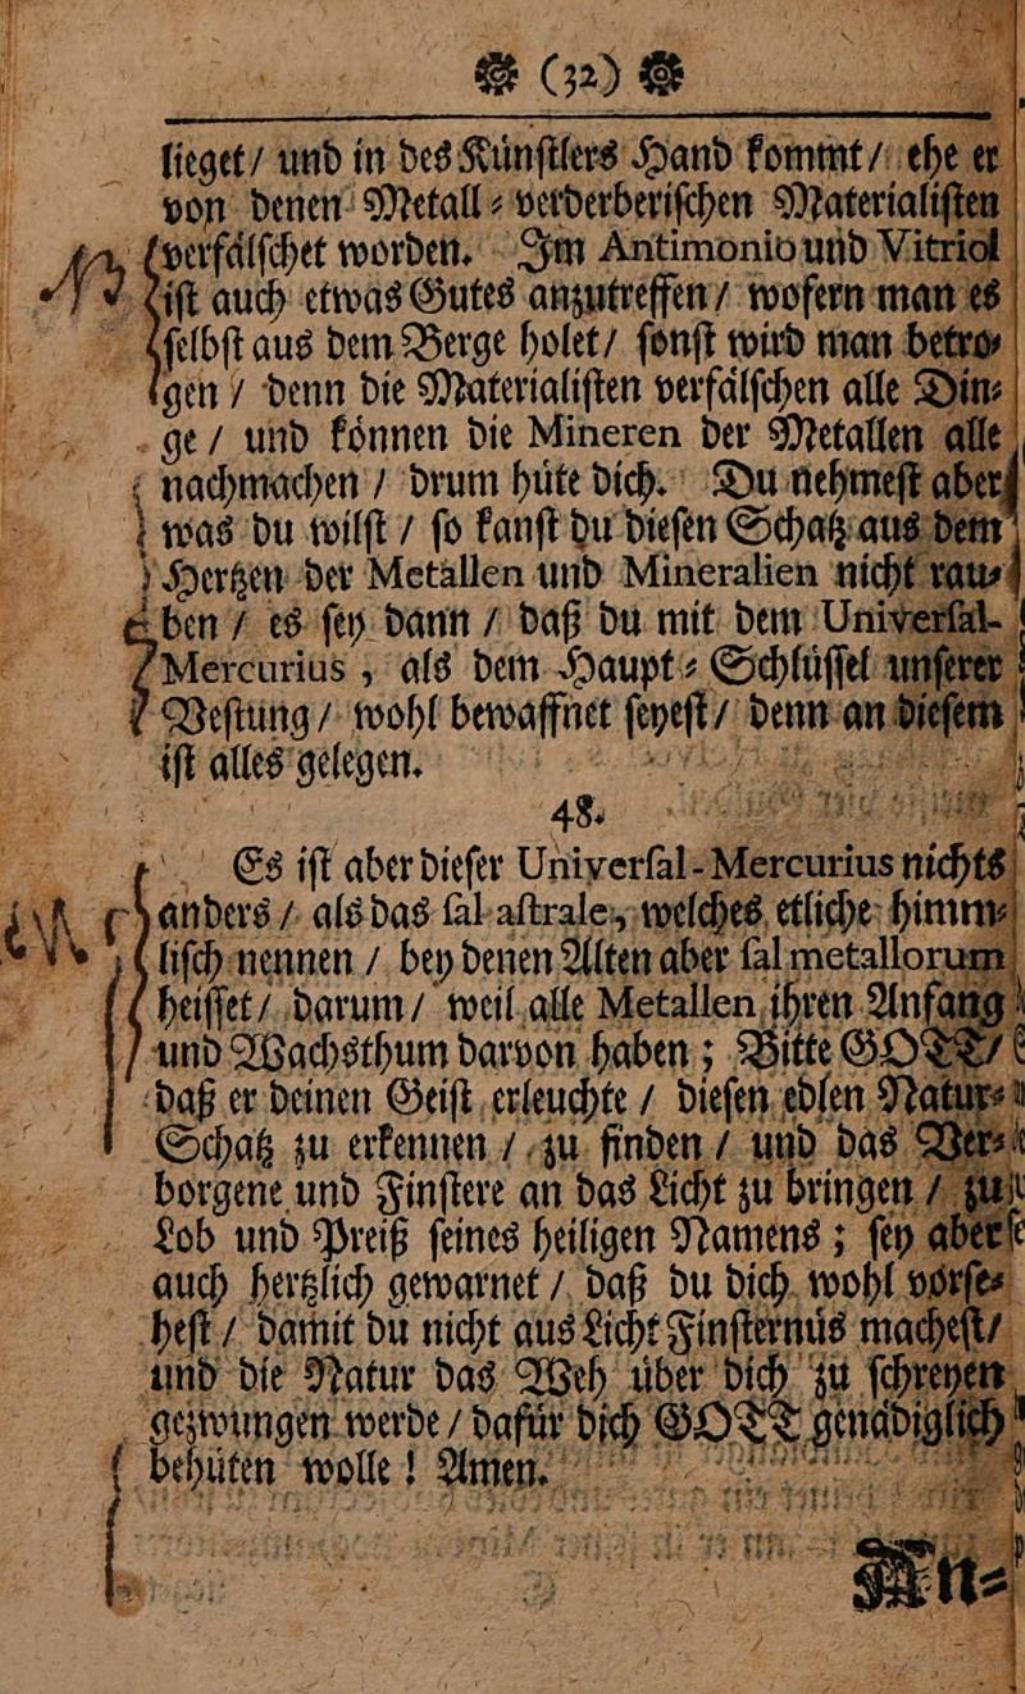 (32)
lieget / und in des Künstlers Hand kommt / ehe er
von denen Metall⸗verderberischen Materialisten
verfälschet worden. Im Antimonio und Vitriol
NB
ist auch etwas Gutes anzutreffen / wofern man es
selbst aus dem Berge holet / sonst wird man betro⸗
gen / denn die Materialisten verfälschen alle Din⸗
ge / und können die Mineren der Metallen alle
nachmachen / drum hüte dich. Du nehmest aber
was du wilst / so kanst du diesen Schatz aus dem
Hertzen der Metallen und Mineralien nicht rau⸗
ben / es sey dann / daß du mit dem Universal-
Mercurius, als dem Haupt⸗Schlüssel unserer
Vestung / wohl bewaffnet seyest / denn an diesem
ist alles gelegen.
48.
Es ist aber dieser Universal-Mercurius nichts
anders / als das sal astrale, welches etliche himm⸗
lisch nennen / bey denen Alten aber sal metallorum
heisset / darum / weil alle Metallen ihren Anfang
und Wachsthum darvon haben; Bitte GOTT /
daß er deinen Geist erleuchte / diesen edlen Natur⸗
Schatz zu erkennen / zu finden / und das Ver⸗
borgene und Finstere an das Licht zu bringen / zu
Lob und Preiß seines heiligen Namens; sey aber
auch hertzlich gewarnet / daß du dich wohl vorse⸗
hest / damit du nicht aus Licht Finsternüs machest /
und die Natur das Weh über dich zu schreyen
gezwungen werde / dafür dich GOTT genädiglich
behüten wolle! Amen.
An⸗